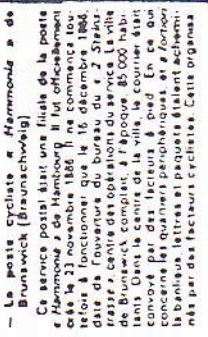 — La poste cycliste « Hammonia » de
Brunswick (Braunschweig)
Ce service postal était une filiale de la poste
« Hammonia » de Hambourg. Il fut officiellement
créé le 21 novembre 1886 et ne commença tou-
tefois à fonctionner que le 16 décembre 1886,
date de l'ouverture du bureau du « 2 Steins-
trasse », centre des opérations du service. La ville
de Brunswick comptait, à l'époque, 85 000 habi-
tants. Dans le centre de la ville, le courrier était
convoyé par des facteurs à pied. En ce qui
concerne les quartiers périphériques, et a fortiori
la banlieue, lettres et paquets étaient achemi-
nés par des facteurs cyclistes. Cette organisa